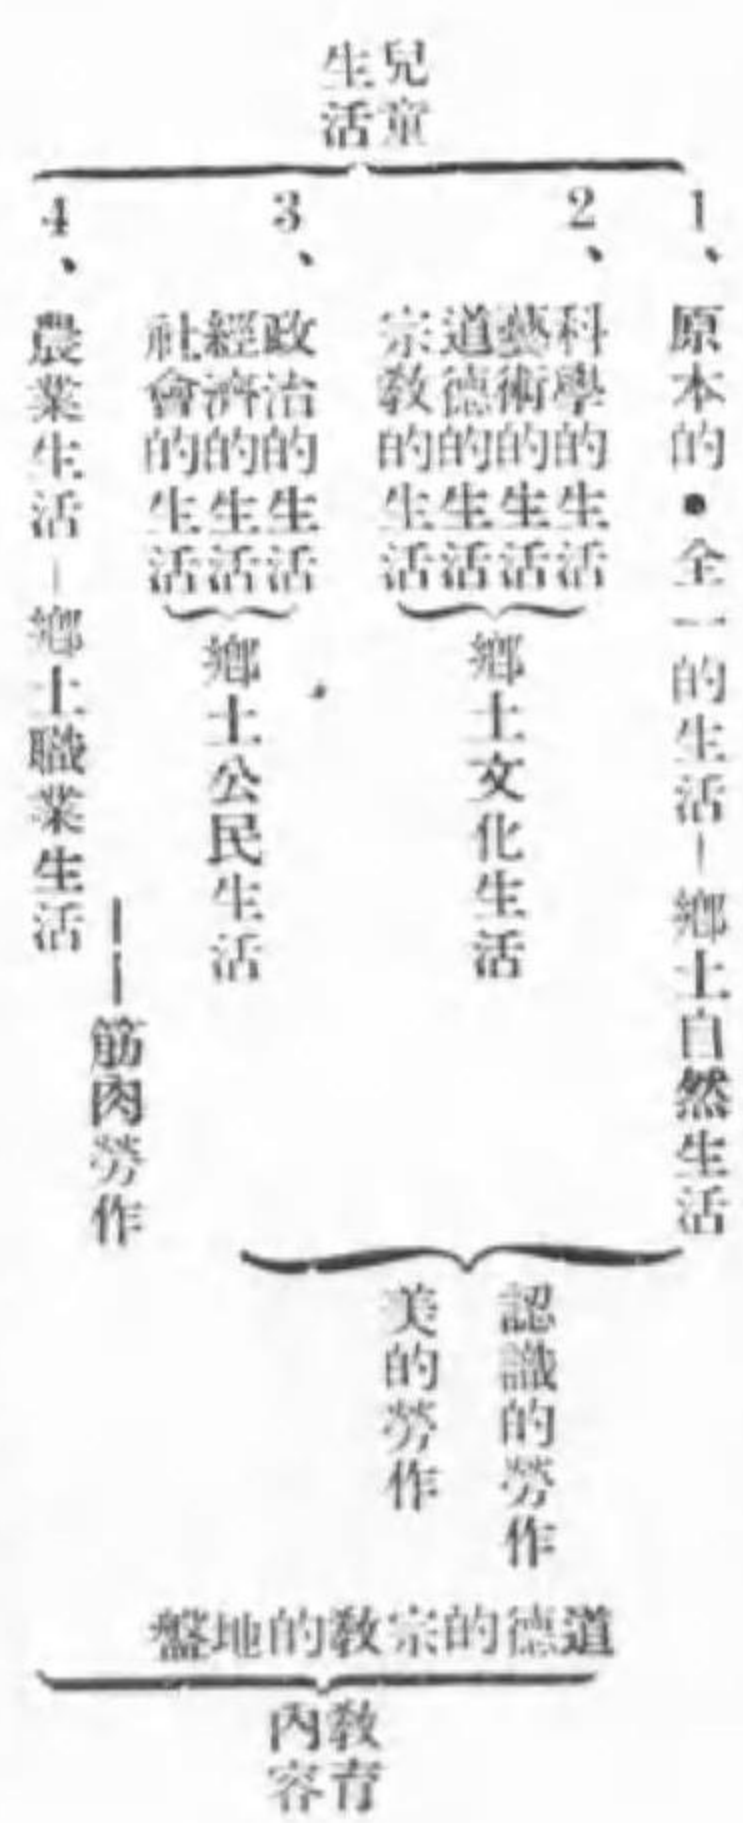 兒童
生活
1、原本的・全一的生活―鄕土自然生活
2、
科學的生活
藝術的生活
道德的生活
宗敎的生活
鄕土文化生活
3、
政治的生活
經濟的生活
社會的生活
鄕土公民生活
4、農業生活―鄕土職業生活
――筋肉勞作
認識的勞作
美的勞作
道德的宗敎的地盤
敎育
內容